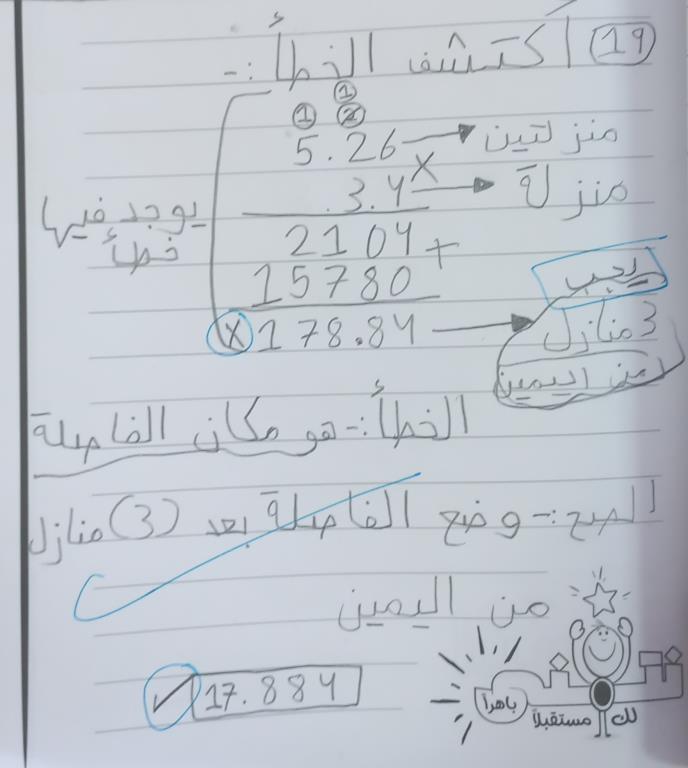 (19) أكتشف الخطأ :-
① ①②
5.26 → منزلتين
×
3.4 → منزلة
2104 +
15780
(x) 178.84 → 3 منازل
يجب
من اليمين
يوجد فيها
خطأ
الخطأ :- هو مكان الفاصلة
الصح :- وضع الفاصلة بعد (3) منازل
من اليمين
✓ 17.884
لك مستقبلاً باهراً